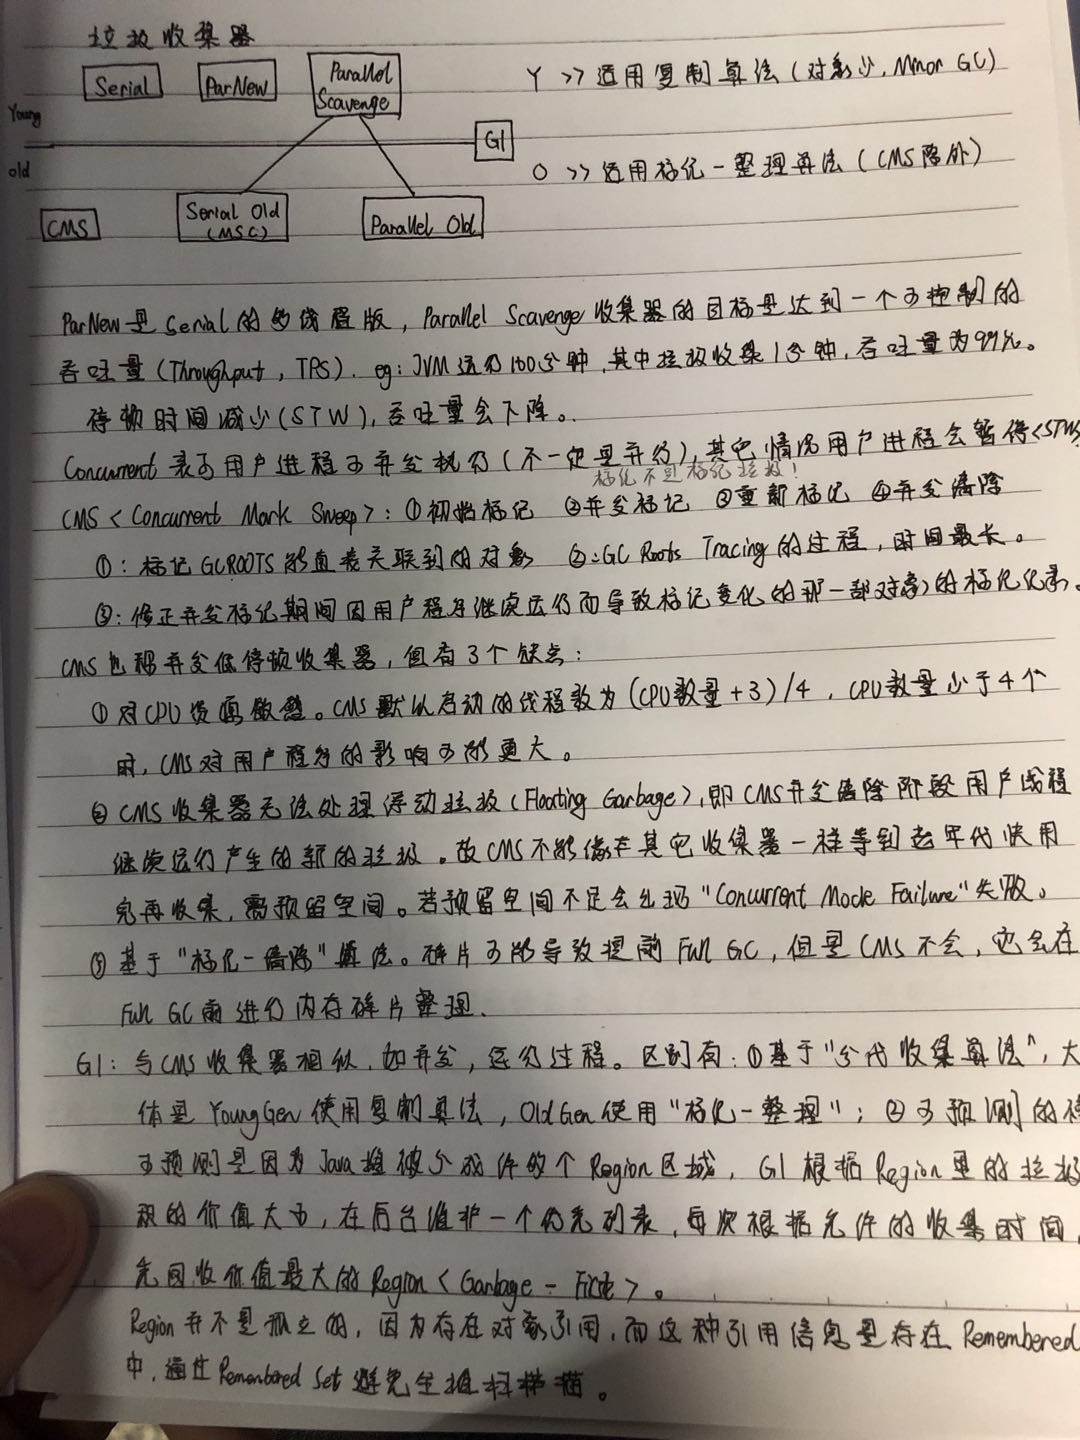 垃圾收集器
Serial
ParNew
Parallel
Scavenge
Y >> 适用复制算法(对象少, Minor GC)
Young
G1
old
O >> 适用标记-整理算法(CMS除外)
CMS
Serial Old
(MSC)
Parallel Old
ParNew是Serial的多线程版, Parallel Scavenge收集器的目标是达到一个可控制的
吞吐量(Throughput, TPS). eg: JVM运行100分钟,其中垃圾收集1分钟,吞吐量为99%。
停顿时间减少(STW),吞吐量会下降。
Concurrent 表示用户进程可并发执行(不一定是并行),其它情况用户进程会暂停<STW>
标记不是标记垃圾!
CMS < Concurrent Mark Sweep>: ①初始标记 ②并发标记 ③重新标记 ④并发清除
①: 标记GCROOTS能直接关联到的对象 ②: GC Roots Tracing的过程,时间最长。
③: 修正并发标记期间因用户程序继续运行而导致标记变化的那一部对象的标记记录。
CMS也称并发低停顿收集器,但有3个缺点:
①对CPU资源敏感。CMS默认启动的线程数为(CPU数量+3)/4, CPU数量少于4个
时, CMS对用户程序的影响可能更大。
②CMS收集器无法处理浮动垃圾(Floating Garbage),即CMS并发清除阶段用户线程
继续运行产生的新的垃圾。故CMS不能像在其它收集器一样等到老年代快用
完再收集,需预留空间。若预留空间不足会出现"Concurrent Mode Failure"失败。
③基于"标记-清除"算法。碎片可能导致提前Full GC,但是CMS不会,它会在
Full GC前进行内存碎片整理.
G1: 与CMS收集器相似,如并发,运行过程。区别有: ①基于"分代收集算法",大
体是YoungGen使用复制算法, OldGen使用"标记-整理"; ②可预测的停
可预测是因为Java堆被分成许多个Region区域, G1根据Region里的垃圾
积的价值大小,在后台维护一个优先列表,每次根据允许的收集时间,
先回收价值最大的Region< Garbage - First>。
Region并不是孤立的,因为存在对象引用,而这种引用信息是存在Remembered
中,通过Remembered Set避免全堆扫描。